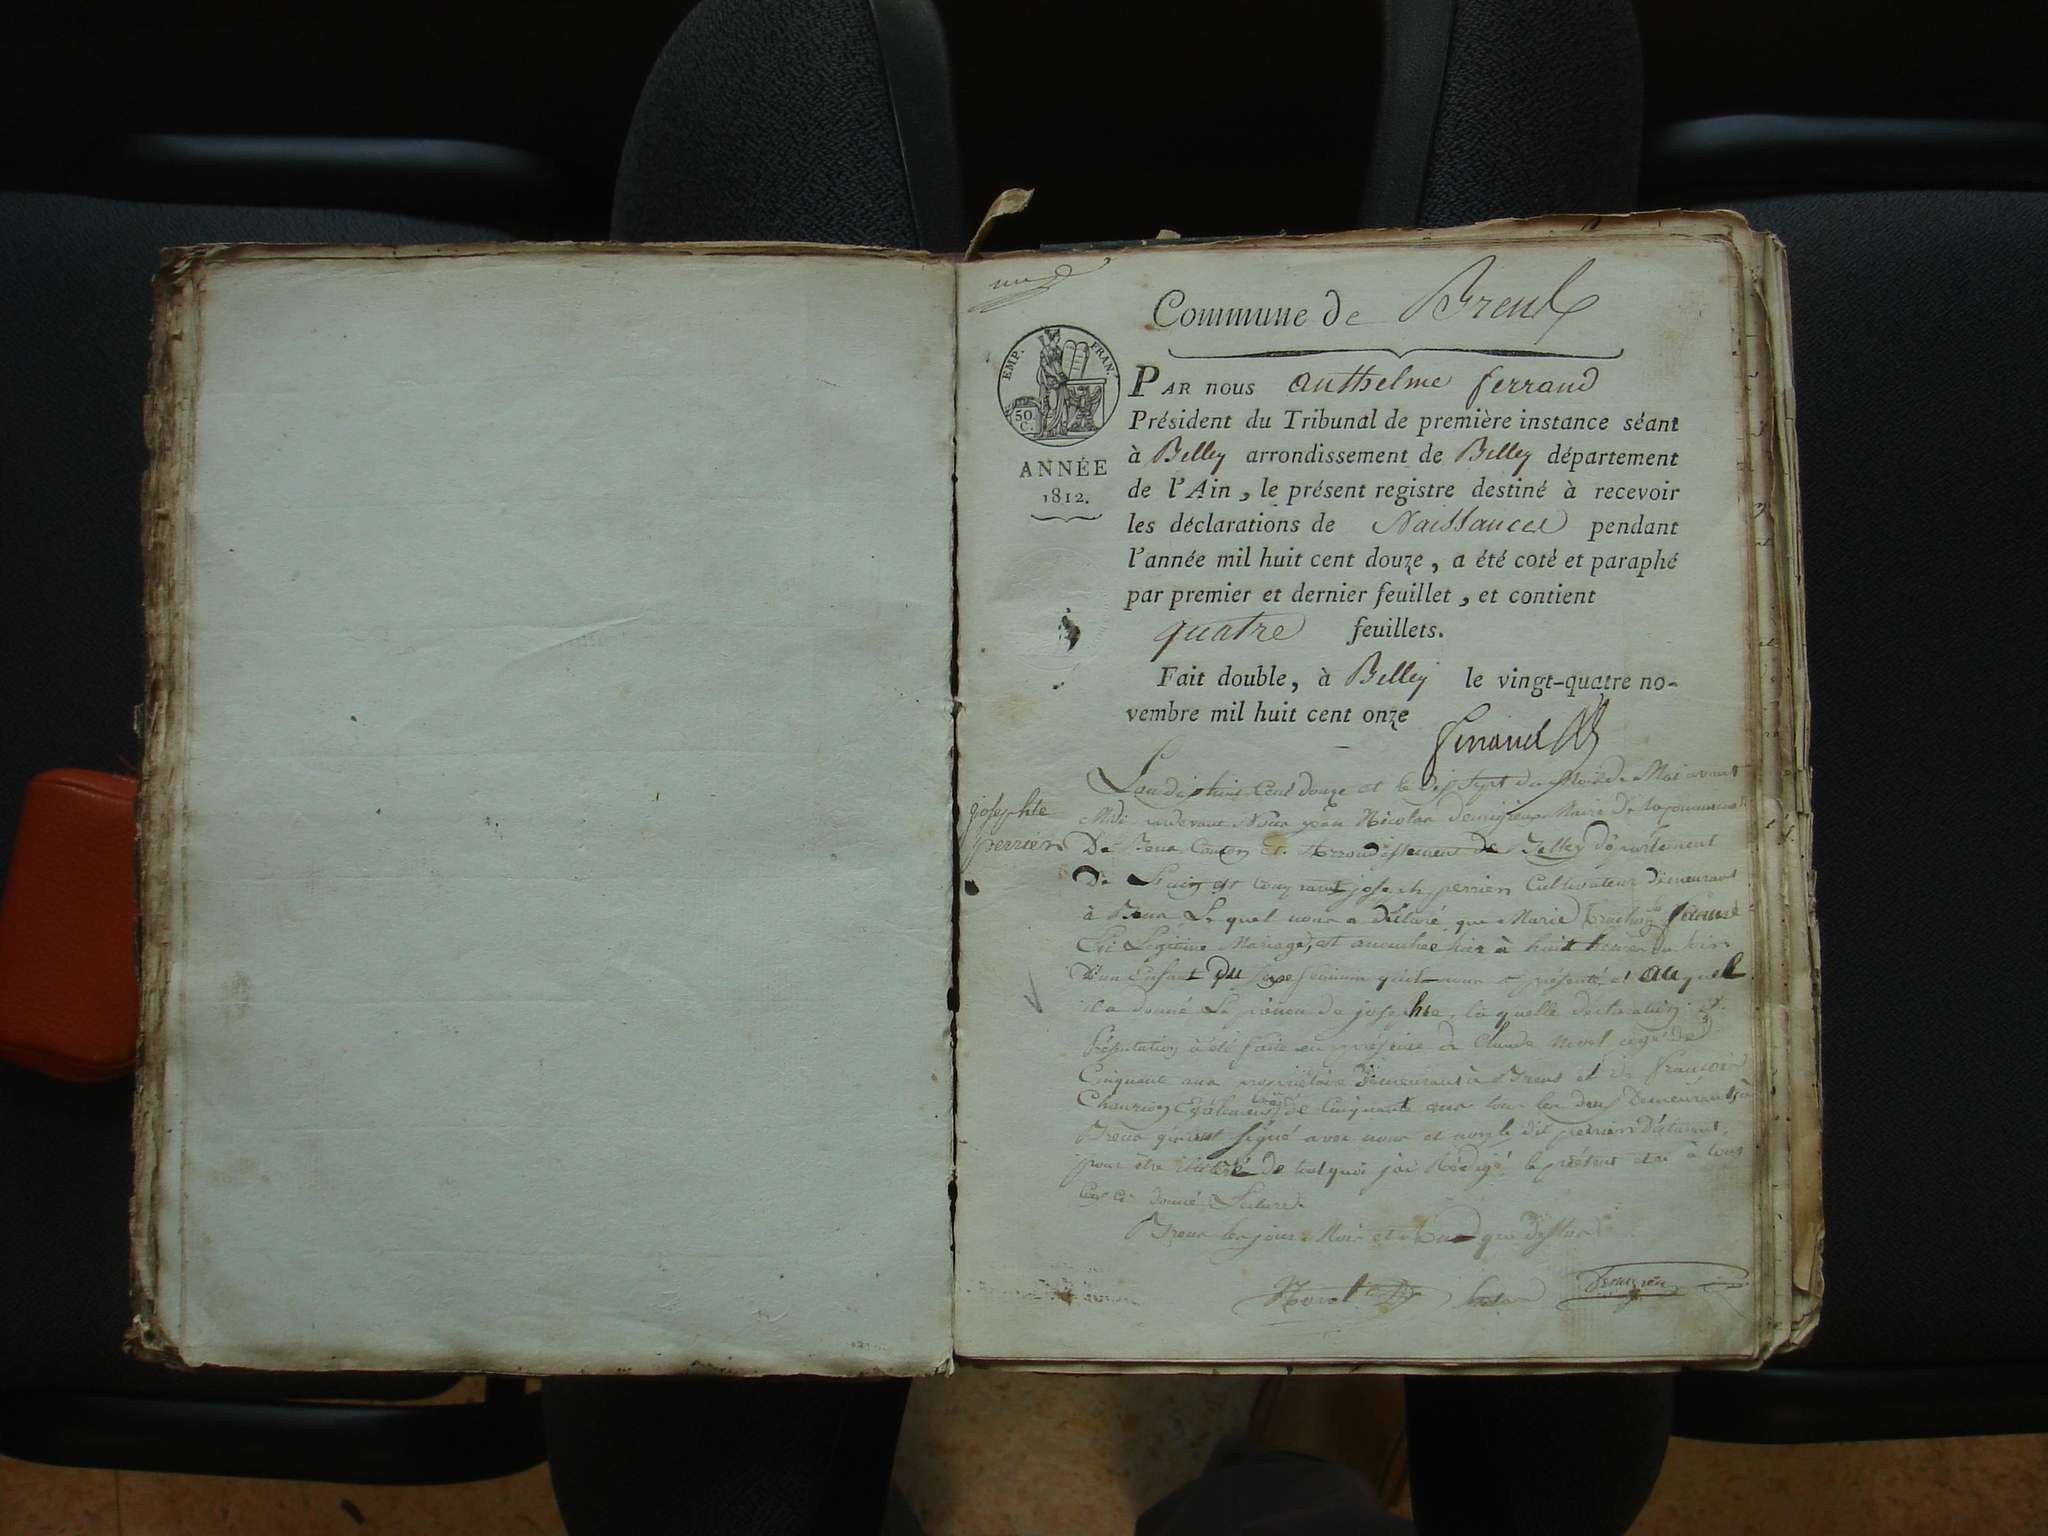 Commune de Brens
EMP. FRAN.
50
C.
ANNÉE
1812.
PAR NOUS Anthelme ferrand
Président du Tribunal de première instance séant
à Belley arrondissement de Belley département
de l'Ain, le présent registre destiné à recevoir
les déclarations de Naissances pendant
l'année mil huit cent douze, a été coté et paraphé
par premier et dernier feuillet, et contient
quatre feuillets.
Fait double, à Belley le vingt-quatre no-
vembre mil huit cent onze
ferrand
josephte
perrier
L'an dix huit Cent douze et le dix sept du Mois de Mai avant
Midi par devant Nous jean Nicolas Maire de la commune
De Brens Canton et Arrondissement de Belley département
De L'ain est comparu joseph perrier Cultivateur demeurant
à Brens Lequel nous a déclaré que Marie femme
En Légitime Mariage, est accouchée hier à huit heures du soir
D'un Enfant Du Sexe féminin qu'il nous a présenté et auquel
il a donné Le prénom de josephte, la quelle déclaration et
présentation a été faite en présence de Claude Morel agé de
Cinquante ans propriétaire Demeurant à Brens et de françois
Egalement agé de Cinquante ans tous les deux Demeurants à
Brens qui ont signé avec nous et non le dit perrier
pour être illitéré de tout quoi j'ai Rédigé le présent et à tous
donné Lecture.
Brens les jour, Mois et an que dessus
Morel